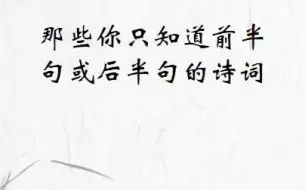 那些你只知道前半
句或后半句的诗词